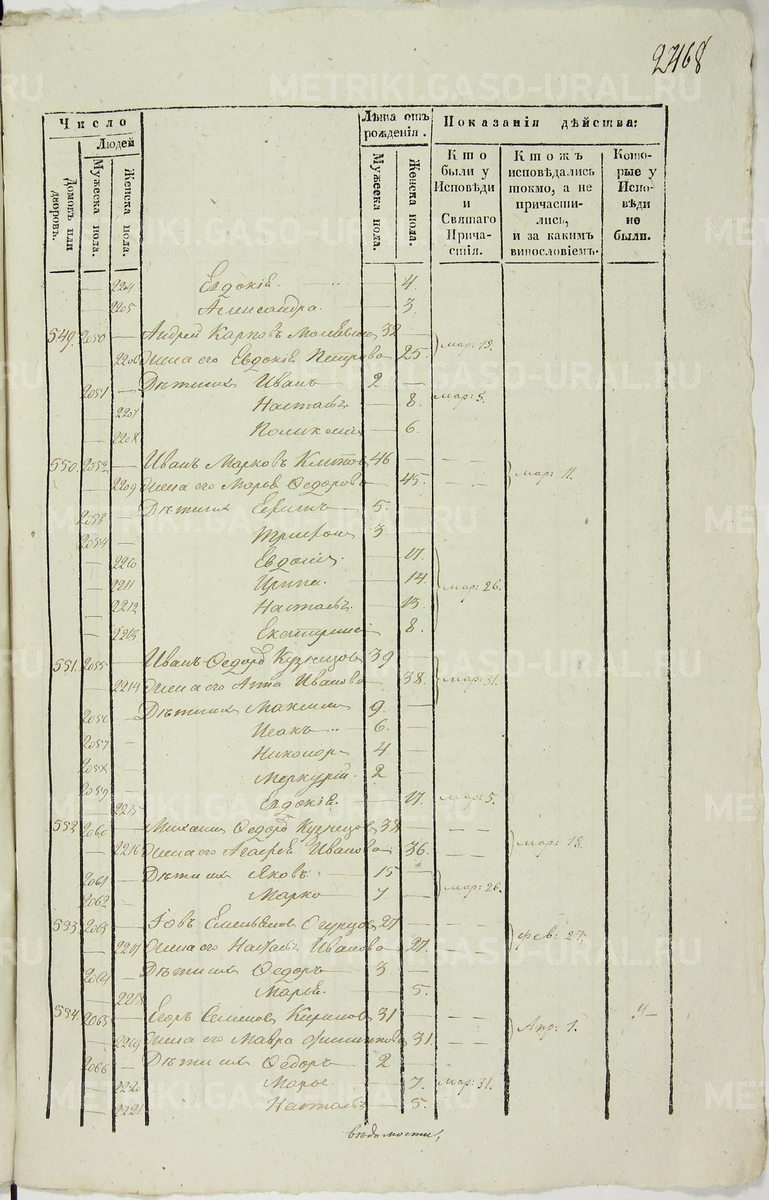 2468
Число
Людей
Домовъ или дворовъ.
Мужеска пола.
Женска пола.
Лѣта отъ рожденія.
Мужеска пола.
Женска пола.
Показанія дѣйства:
Кто были у Исповѣди и Святаго Причастія.
Ктожъ исповѣдались токмо, а не причастились, и за какимъ винословіемъ.
Которые у Исповѣди не были.
2204 Евдокія 4
2205 Александра 3
549. 2050 Андрей Карповъ 32 мар: 19.
2206 Жена его Евдокія Петрова 25.
2051 Дѣти ихъ Иванъ 2
2207 Наталья 8. мар: 5.
2208 6.
550. 2052 Иванъ Марковъ 46
2209 Жена его Марья Ѳедорова 45. мар: 11.
2053 Дѣти ихъ 5.
2054 Трифонъ 3
2210 Евдокія 17.
2211 Ирина 14 мар: 26.
2212 Наталья 13
2213 Екатерина 8.
551. 2055 Иванъ Ѳедоровъ Кузнецовъ 39
2214 Жена его Анна Иванова 38. мар: 31.
2056 Дѣти ихъ Максимъ 9.
2057 Исакъ 6.
2058 Никоноръ 4.
2059 Меркурій 2
2215 Евдокія 17. мар: 5.
552 2060 Михаилъ Ѳедоровъ Кузнецовъ 38
2216 Жена его Агафья Иванова 36. мар: 18.
2061 Дѣти ихъ Яковъ 15
2062 Марко 7 мар: 26.
553 2063 Іовъ Емельяновъ Огурцовъ 27
2217 Жена его Наталья Иванова 27. фев: 27.
2064 Дѣти ихъ Ѳедоръ 3
2218 Марья 5.
554. 2065 Егоръ Семеновъ 31
2219 Жена его Мавра 31. Апр: 1.
2066 Дѣти ихъ Ѳедоръ 2
2220 Марья 7. мар: 31.
2221 Наталья 5.
вѣдомости,